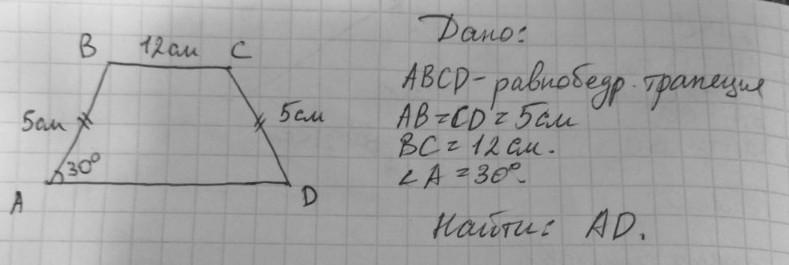 B 12см C
5см
5см
30°
A
D
Дано:
ABCD - равнобедр. трапеция
AB = CD = 5см
BC = 12см.
∠A = 30°.
Найти: AD.